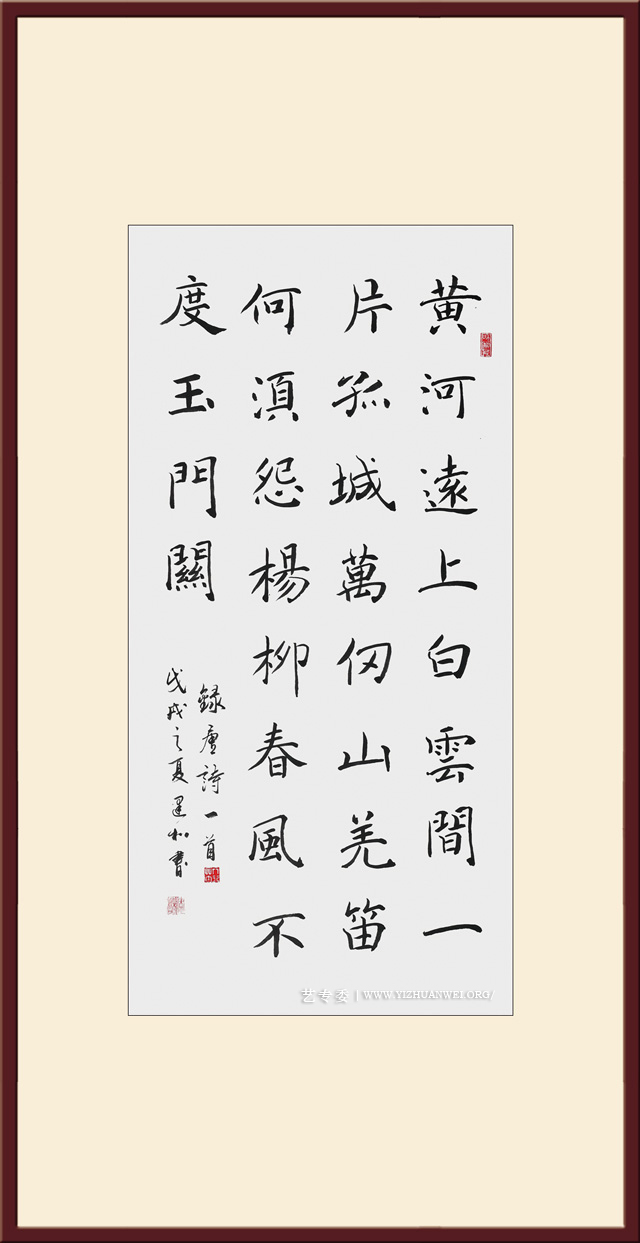 黄河遠上白雲間一
片孤城萬仞山羌笛
何湏怨楊柳春風不
度玉門關
録唐詩一首
戊戌之夏建和書
艺专委 | WWW.YIZHUANWEI.ORG/